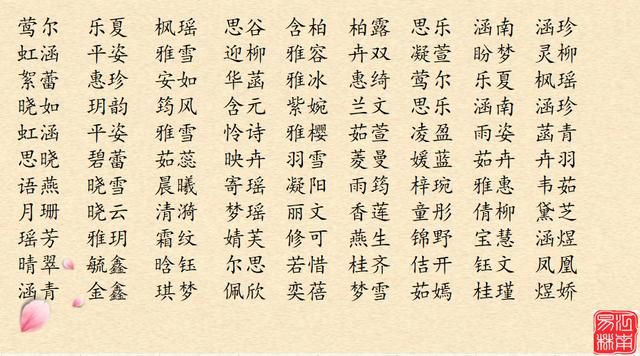 莺尔 乐夏 枫瑶 思谷 含柏 柏露 思乐 涵南 涵珍
虹涵 平姿 雅雪 迎柳 雅容 卉双 凝萱 盼梦 灵柳
絮蕾 惠珍 安如 华菡 雅冰 惠绮 莺尔 乐夏 枫瑶
晓如 玥韵 筠风 含元 紫婉 兰文 思乐 涵南 涵珍
虹涵 平姿 雅雪 怜诗 雅樱 茹萱 凌盈 雨姿 菡青
思晓 碧蕾 茹蕊 映卉 羽雪 菱曼 媛蓝 茹卉 卉羽
语燕 晓雪 晨曦 寄瑶 凝阳 雨筠 梓琬 雅惠 韦茹
月珊 晓云 清漪 梦瑶 丽文 香莲 童彤 倩柳 黛芝
瑶芳 雅玥 霜纹 婧芙 修可 燕生 锦野 宝慧 涵煜
晴翠 毓鑫 晗钰 尔思 若惜 桂齐 佶开 钰文 凤凰
涵青 金鑫 琪梦 佩欣 奕蓓 梦雪 茹嫣 桂瑾 煜娇
江南易林